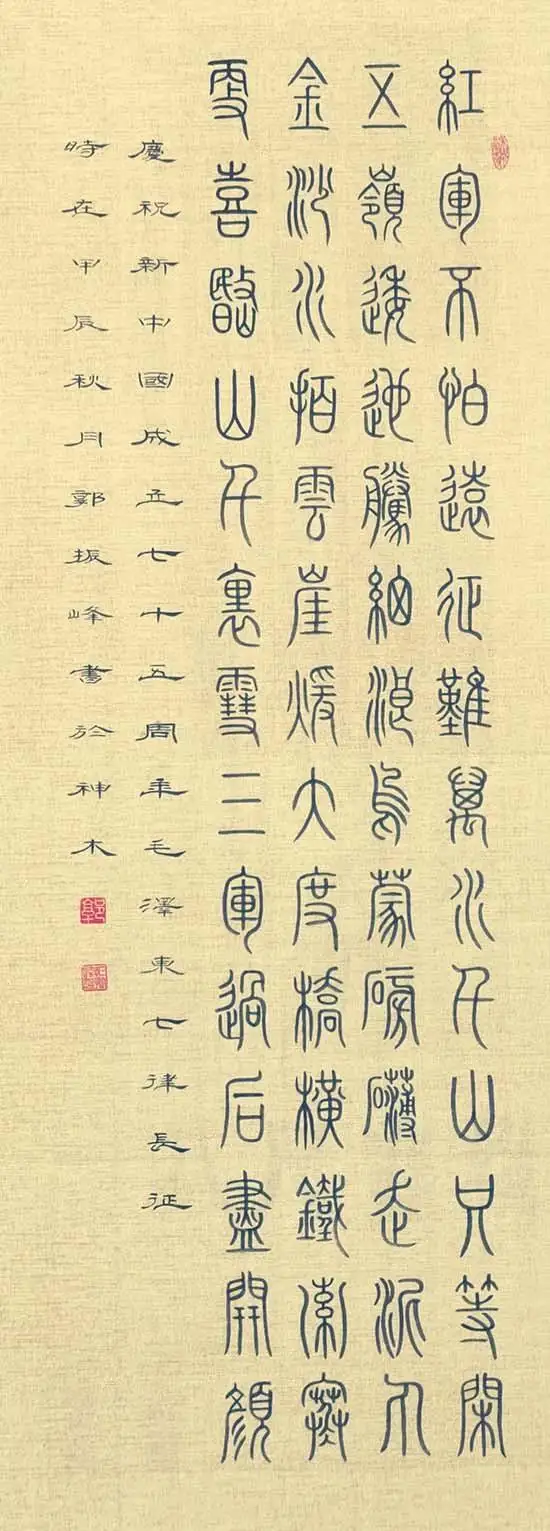 紅軍不怕遠征難萬水千山只等閑
五嶺逶迤騰細浪烏蒙磅礴走泥丸
金沙水拍雲崖暖大度橋橫鐵索寒
更喜岷山千裏雪三軍過后盡開顏
慶祝新中國成立七十五周年毛澤東七律長征
時在甲辰秋月郭振峰書於神木